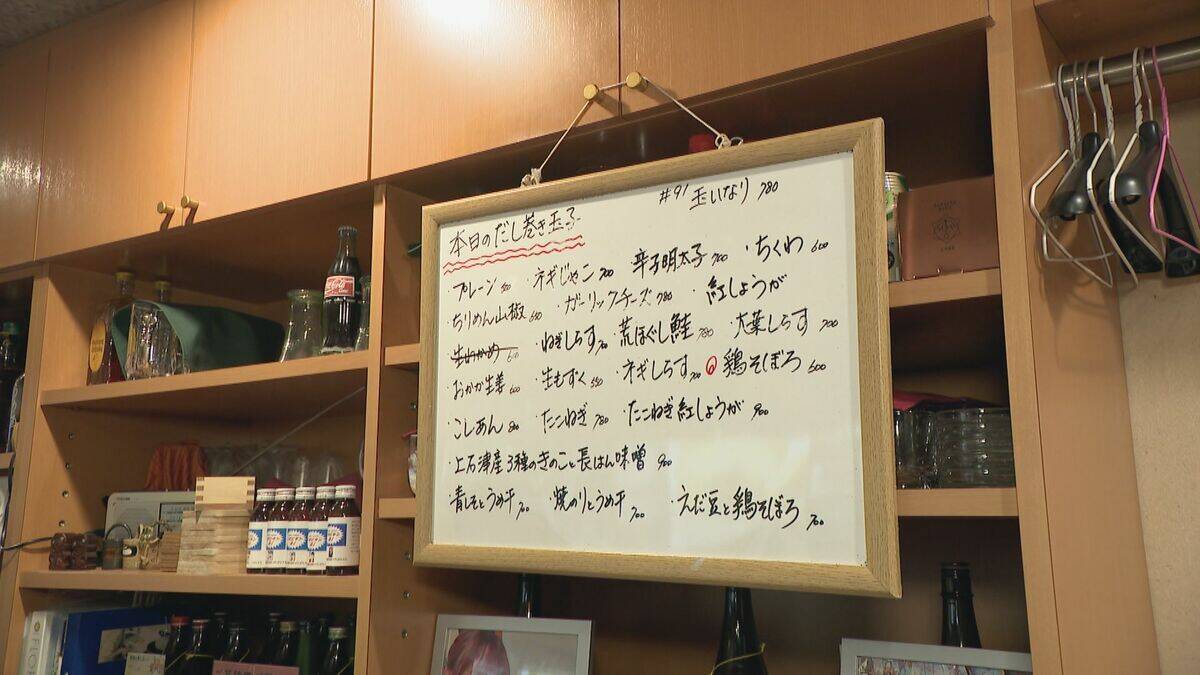 #91 玉いなり 780
本日のだし巻き玉子
・プレーン 500 ・ネギじゃこ 700 辛子明太子 700 ・ちくわ 600
・ちりめん山椒 600 ・ガーリックチーズ 780 ・紅しょうが
・生わかめ 600 ・ねぎしらす 700 ・荒ほぐし鮭 780 ・大葉しらす 700
・おかか生姜 600 ・生もずく 550 ・ネギしらす 700 鶏そぼろ 600
・こしあん 800 ・たこねぎ 780 ・たこねぎ紅しょうが 900
・上石津産3種のきのこと長はん味噌 900
・青しそとうめ干 700 ・焼のりとうめ干 700 ・えだ豆と鶏そぼろ 700
Coca-Cola